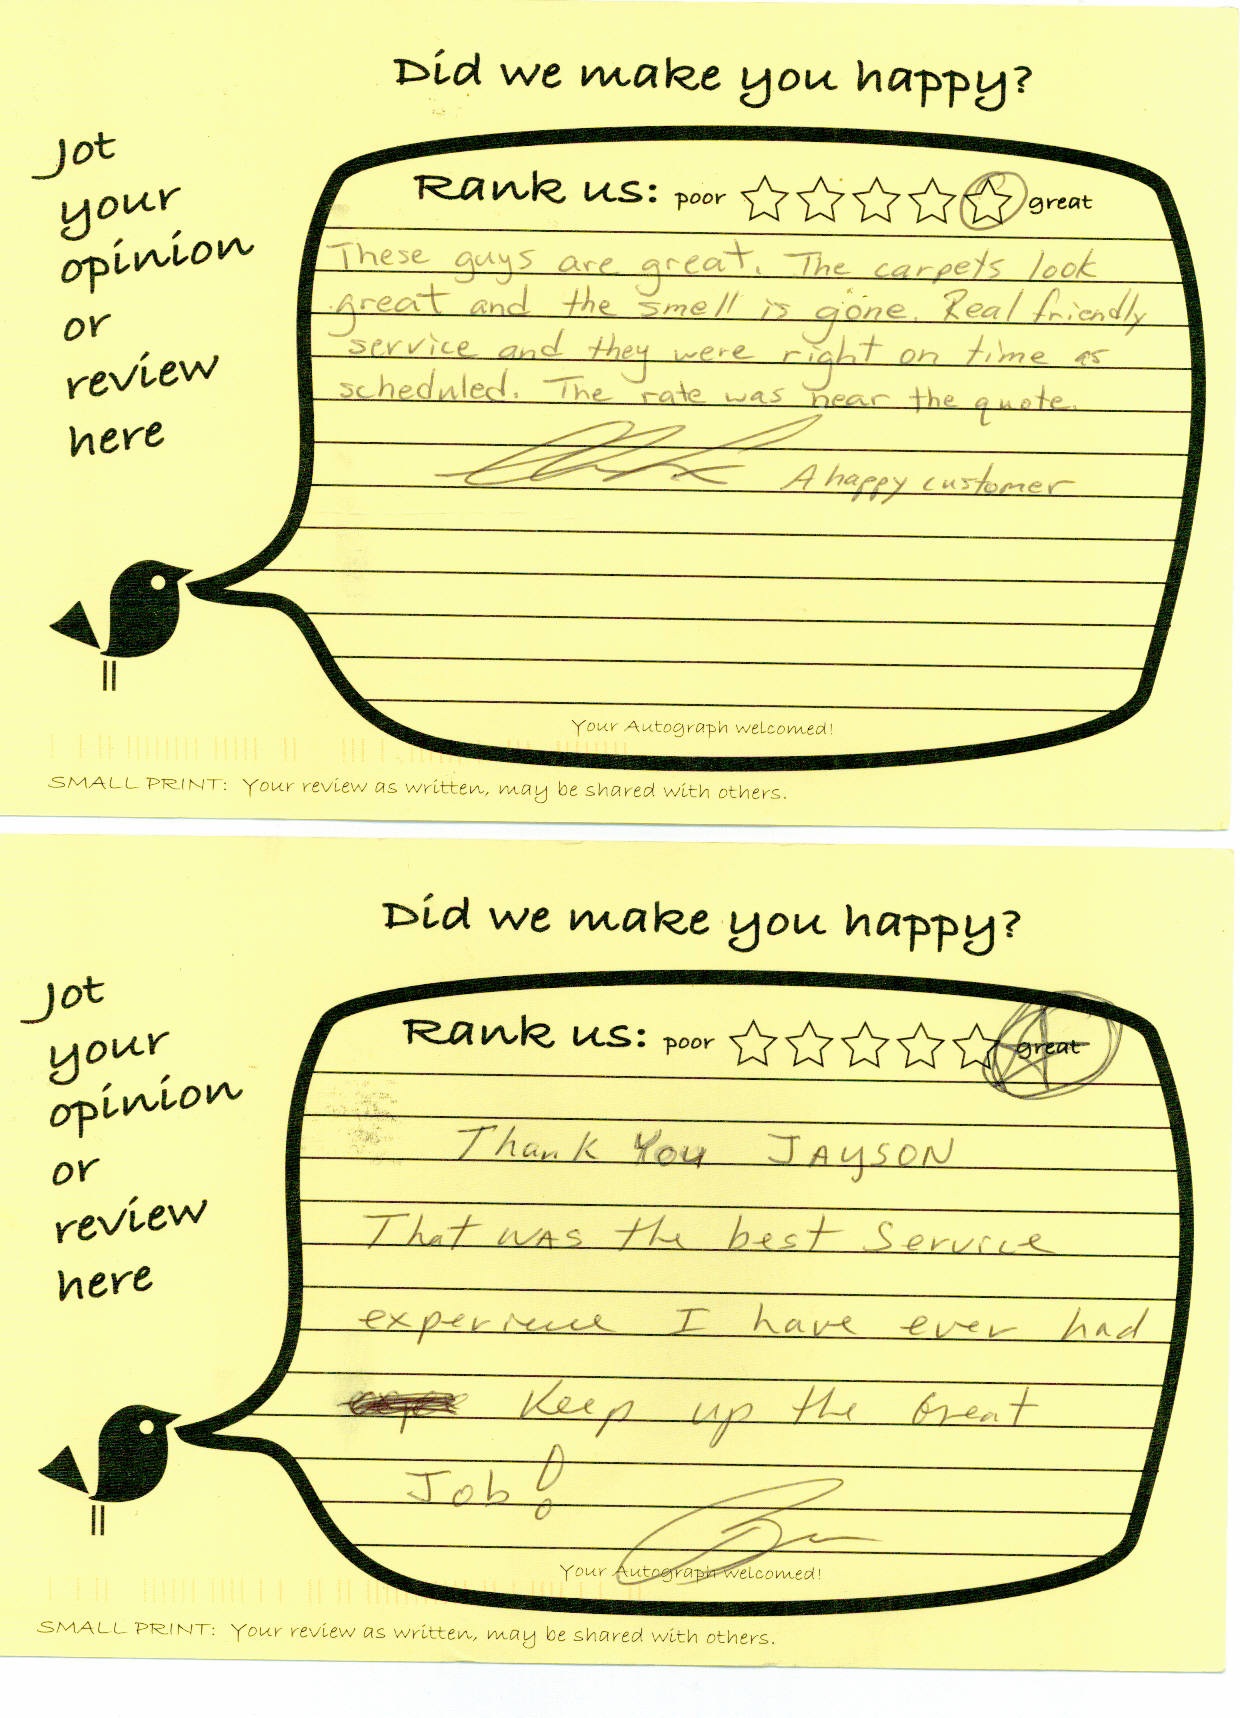 Did we make you happy?
Jot
your
opinion
or
review
here
Rank us: poor great
These guys are great. The carpets look
great and the smell is gone. Real friendly
service and they were right on time as
scheduled. The rate was near the quote.
A happy customer
Your Autograph welcomed!
SMALL PRINT: Your review as written, may be shared with others.
Did we make you happy?
Jot
your
opinion
or
review
here
Rank us: poor great
Thank You JAYSON
That WAS the best Service
experience I have ever had
Keep up the Great
Job!
Your Autograph welcomed!
SMALL PRINT: Your review as written, may be shared with others.